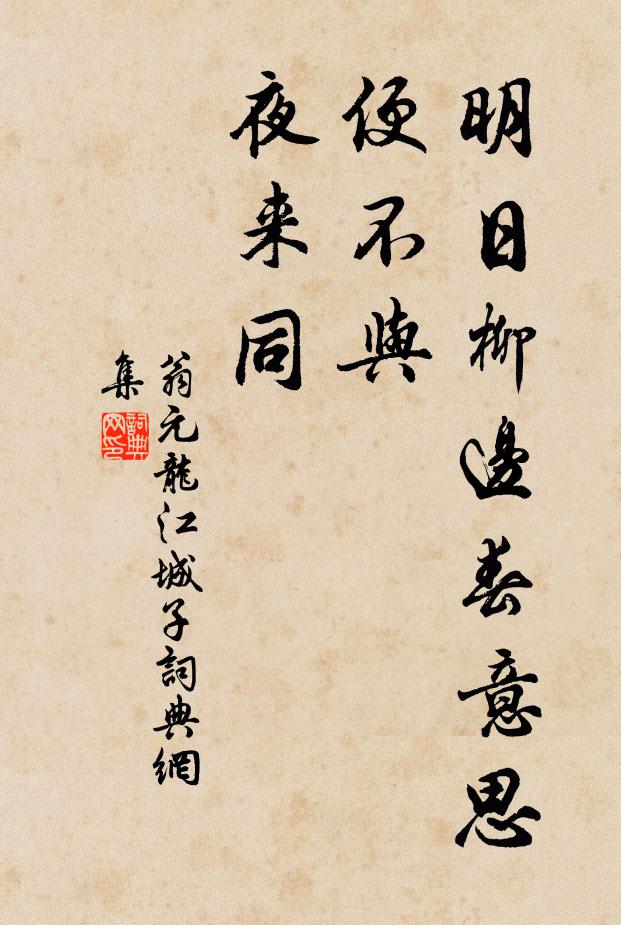 明日柳邊春意思
便不與
夜来同
翁元龍江城子詞典網
集
詞典
网印